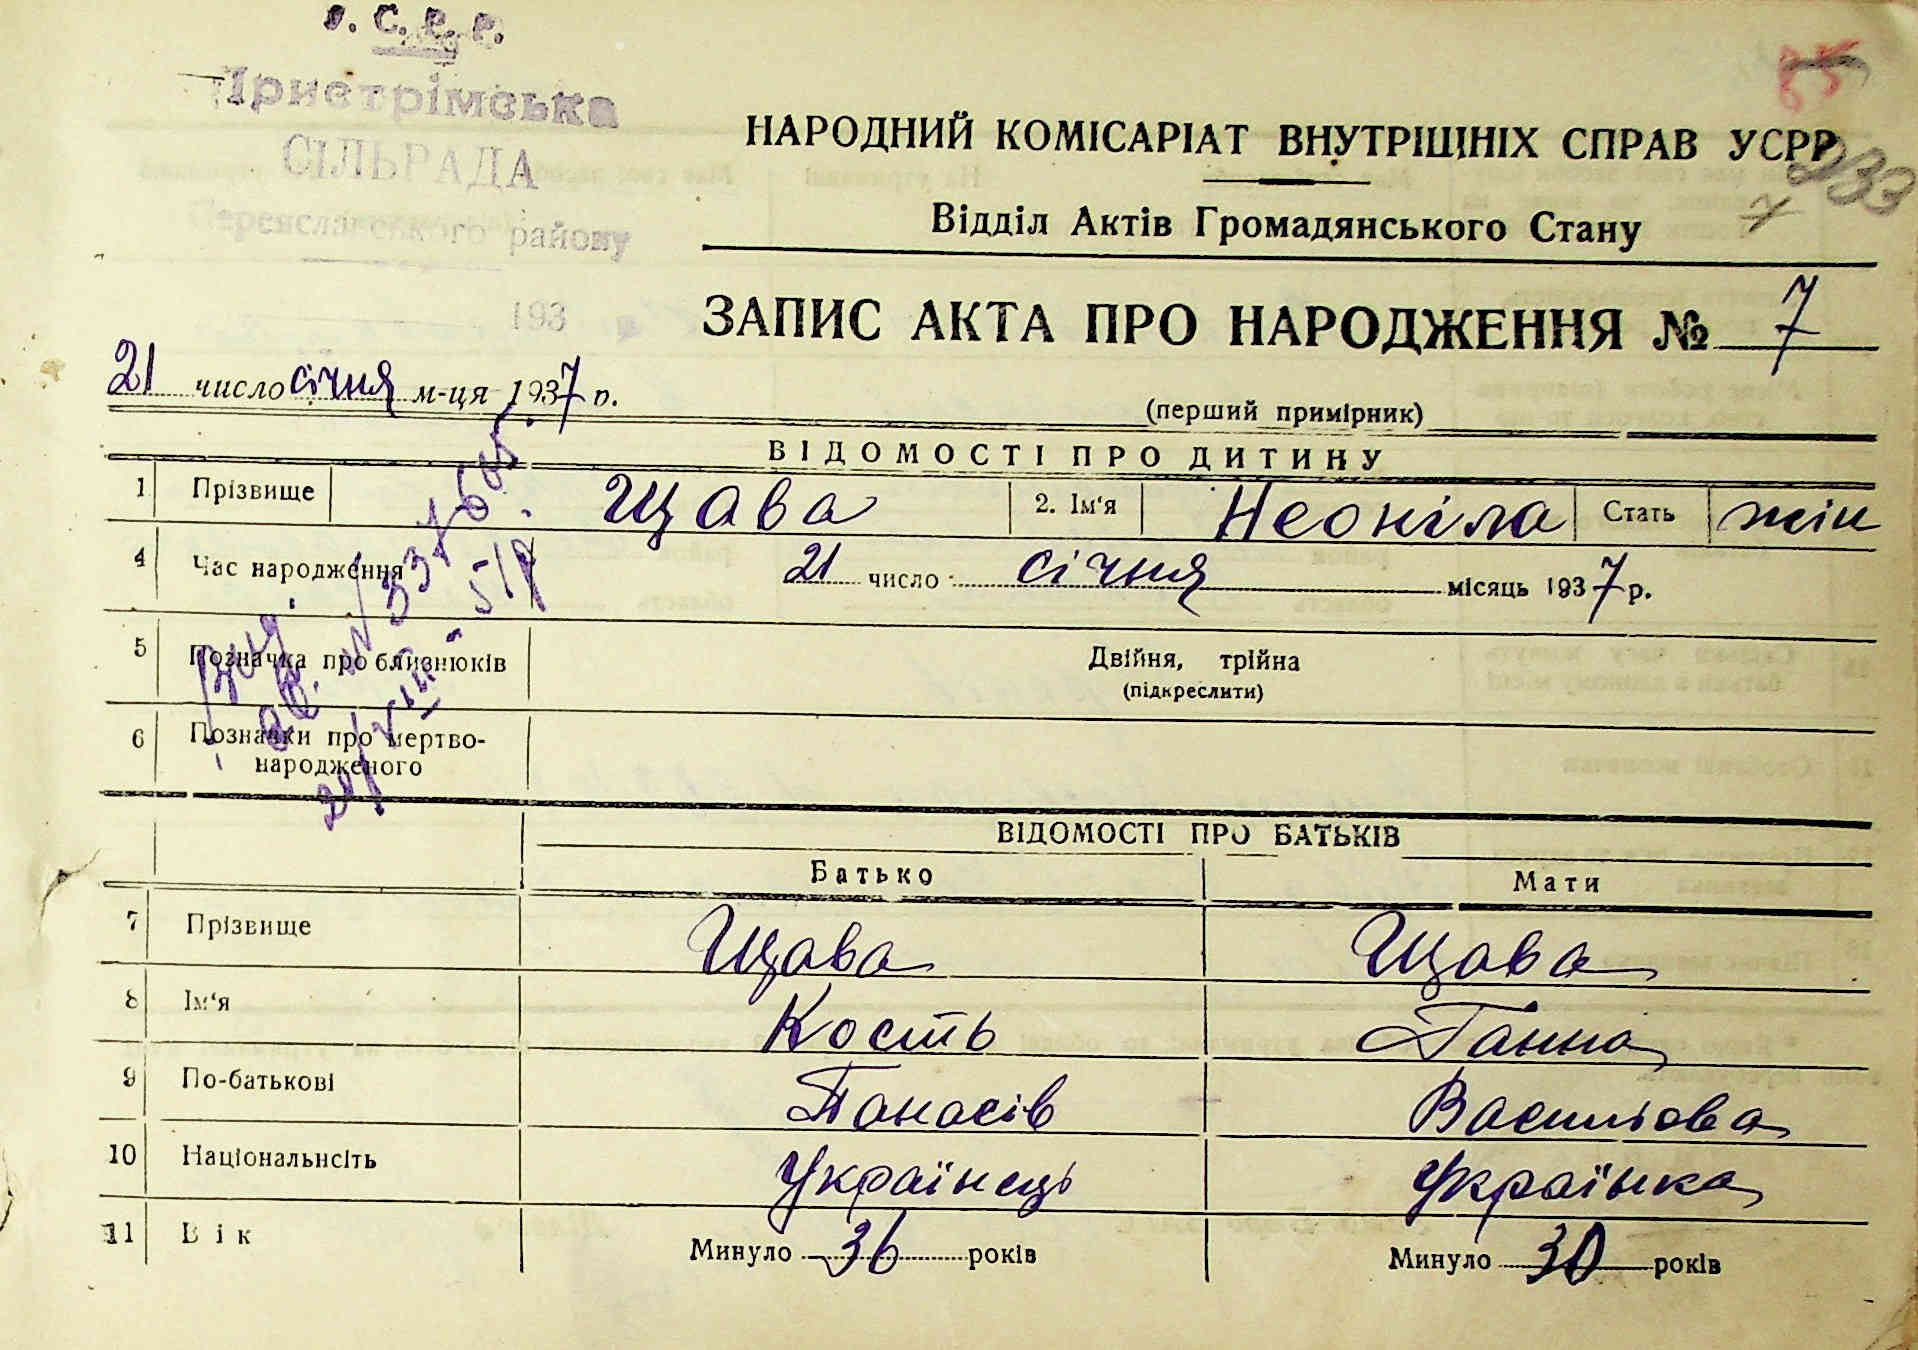 У. С. Р. Р.
Пристрімська
СІЛЬРАДА
Переяславського району
193
НАРОДНИЙ КОМІСАРІАТ ВНУТРІШНІХ СПРАВ УСРР
Відділ Актів Громадянського Стану
ЗАПИС АКТА ПРО НАРОДЖЕННЯ № 7
21 число січня м-ця 1937 р.
(перший примірник)
ВІДОМОСТІ ПРО ДИТИНУ
1 Прізвище Щава 2. Ім'я Неоніла Стать жін
4 Час народження 21 число січня місяць 1937 р.
5 Позначка про близнюків Двійня, трійна
(підкреслити)
6 Позначки про мертво-
народженого
ВІДОМОСТІ ПРО БАТЬКІВ
Батько Мати
7 Прізвище Щава Щава
8 Ім'я Кость Ганна
9 По-батькові Панасів Васильова
10 Національнсіть Українець Українка
11 Вік Минуло 36 років Минуло 30 років